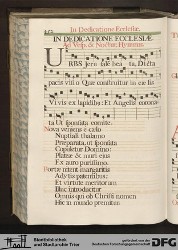 In Dedicatione Ecclesiæ.
IN DEDICATIONE ECCLESIÆ
Ad Vesp. & Noctur. Hymnus.
URBS Jerusalem beata, Dicta
pacis visio Quæ construitur in cælis
Vivis ex lapidibus: Et Angelis corona-
ta Ut sponsata comite.
Nova veniens è cælo
Nuptiali thalamo
Præparata, ut sponsata
Copuletur Domino:
Plateæ & muri ejus
Ex auro purissimo.
Portæ nitent margaritis
Adytis patentibus:
Et virtute meritorum
Illuc introducitur
Omnis qui ob Christi nomen
Hic in mundo premitur.
Stadtbibliothek
und Stadtarchiv Trier
Gefördert durch
DFG
Deutsche
Forschungsgemeinschaft